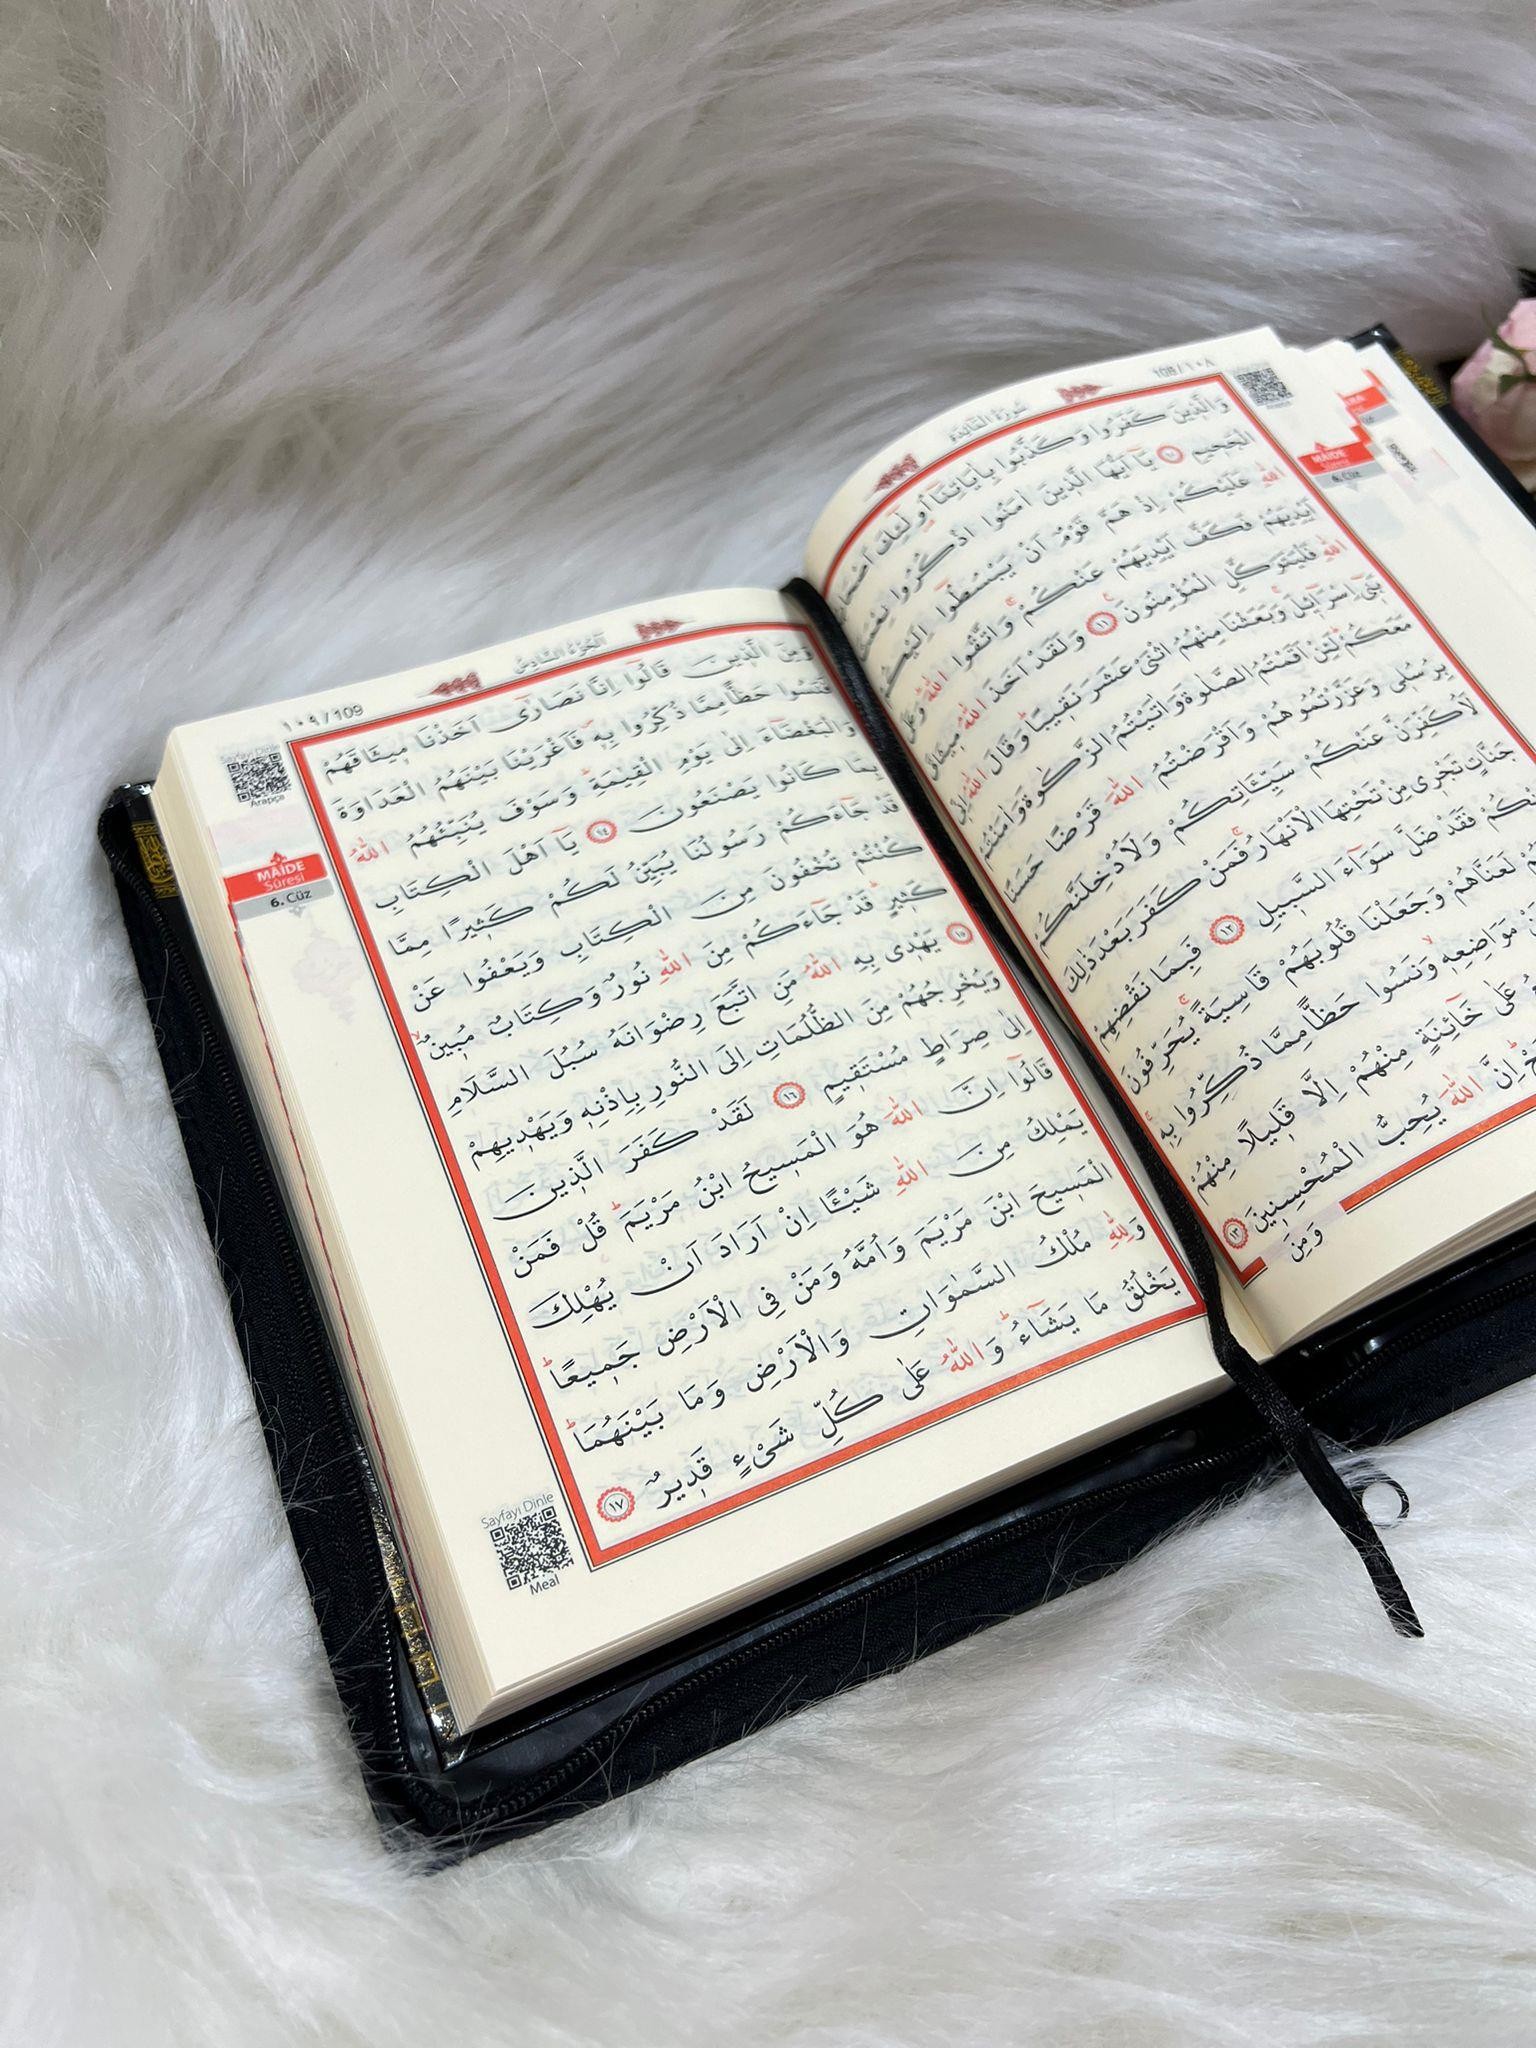 108 / ١٠٨
سُورَةُ الْمَائِدَةِ
MÂİDE
Sûresi
6. Cüz
وَالَّذ۪ينَ كَفَرُوا وَكَذَّبُوا بِاٰيَاتِنَٓا اُو۬لٰٓئِكَ
الْجَح۪يمِ ١٠ يَٓا اَيُّهَا الَّذ۪ينَ اٰمَنُوا اذْكُرُوا
اللّٰهِ عَلَيْكُمْ اِذْ هَمَّ قَوْمٌ اَنْ يَبْسُطُٓوا اِلَيْكُمْ
اَيْدِيَهُمْ فَكَفَّ اَيْدِيَهُمْ عَنْكُمْۚ وَاتَّقُوا اللّٰهَۜ وَعَلَى
اللّٰهِ فَلْيَتَوَكَّلِ الْمُؤْمِنُونَ۟ ١١ وَلَقَدْ اَخَذَ اللّٰهُ م۪يثَاقَ
بَن۪ٓي اِسْرَٓائ۪لَۚ وَبَعَثْنَا مِنْهُمُ اثْنَيْ عَشَرَ نَق۪يبًاۜ وَقَالَ اللّٰهُ اِنّ۪ي
مَعَكُمْۜ لَئِنْ اَقَمْتُمُ الصَّلٰوةَ وَاٰتَيْتُمُ الزَّكٰوةَ وَاٰمَنْتُمْ
بِرُسُل۪ي وَعَزَّرْتُمُوهُمْ وَاَقْرَضْتُمُ اللّٰهَ قَرْضًا حَسَنًا
لَاُكَفِّرَنَّ عَنْكُمْ سَيِّـَٔاتِكُمْ وَلَاُدْخِلَنَّكُمْ
جَنَّاتٍ تَجْر۪ي مِنْ تَحْتِهَا الْاَنْهَارُۚ فَمَنْ كَفَرَ بَعْدَ ذٰلِكَ
فَقَدْ ضَلَّ سَوَٓاءَ السَّب۪يلِ ١٢ فَبِمَا نَقْضِهِمْ
لَعَنَّاهُمْ وَجَعَلْنَا قُلُوبَهُمْ قَاسِيَةًۚ يُحَرِّفُونَ
مَوَاضِعِه۪ۙ وَنَسُوا حَظًّا مِمَّا ذُكِّرُوا بِه۪ۚ
عَلٰى خَٓائِنَةٍ مِنْهُمْ اِلَّا قَل۪يلًا مِنْهُمْ
اِنَّ اللّٰهَ يُحِبُّ الْمُحْسِن۪ينَ ١٣
وَمِنَ
الْجُزْءُ السَّادِسُ
١٠٩ / 109
Sayfayı Dinle
Arapça
MÂİDE
Sûresi
6. Cüz
وَمِنَ الَّذ۪ينَ قَالُٓوا اِنَّا نَصَارٰٓى اَخَذْنَا م۪يثَاقَهُمْ
فَنَسُوا حَظًّا مِمَّا ذُكِّرُوا بِه۪ۖ فَاَغْرَيْنَا بَيْنَهُمُ الْعَدَاوَةَ
وَالْبَغْضَٓاءَ اِلٰى يَوْمِ الْقِيٰمَةِۜ وَسَوْفَ يُنَبِّئُهُمُ اللّٰهُ
بِمَا كَانُوا يَصْنَعُونَ ١٤ يَٓا اَهْلَ الْكِتَابِ
قَدْ جَٓاءَكُمْ رَسُولُنَا يُبَيِّنُ لَكُمْ كَث۪يرًا مِمَّا
كُنْتُمْ تُخْفُونَ مِنَ الْكِتَابِ وَيَعْفُوا عَنْ
كَث۪يرٍۜ قَدْ جَٓاءَكُمْ مِنَ اللّٰهِ نُورٌ وَكِتَابٌ مُب۪ينٌۙ
١٥ يَهْد۪ي بِهِ اللّٰهُ مَنِ اتَّبَعَ رِضْوَانَهُ سُبُلَ السَّلَامِ
وَيُخْرِجُهُمْ مِنَ الظُّلُمَاتِ اِلَى النُّورِ بِاِذْنِه۪ وَيَهْد۪يهِمْ
اِلٰى صِرَاطٍ مُسْتَق۪يمٍ ١٦ لَقَدْ كَفَرَ الَّذ۪ينَ
قَالُٓوا اِنَّ اللّٰهَ هُوَ الْمَس۪يحُ ابْنُ مَرْيَمَۜ قُلْ فَمَنْ
يَمْلِكُ مِنَ اللّٰهِ شَيْـًٔا اِنْ اَرَادَ اَنْ يُهْلِكَ
الْمَس۪يحَ ابْنَ مَرْيَمَ وَاُمَّهُ وَمَنْ فِي الْاَرْضِ جَم۪يعًاۜ
وَلِلّٰهِ مُلْكُ السَّمٰوَاتِ وَالْاَرْضِ وَمَا بَيْنَهُمَاۜ
يَخْلُقُ مَا يَشَٓاءُۜ وَاللّٰهُ عَلٰى كُلِّ شَيْءٍ قَد۪يرٌ ١٧
Sayfayı Dinle
Meal